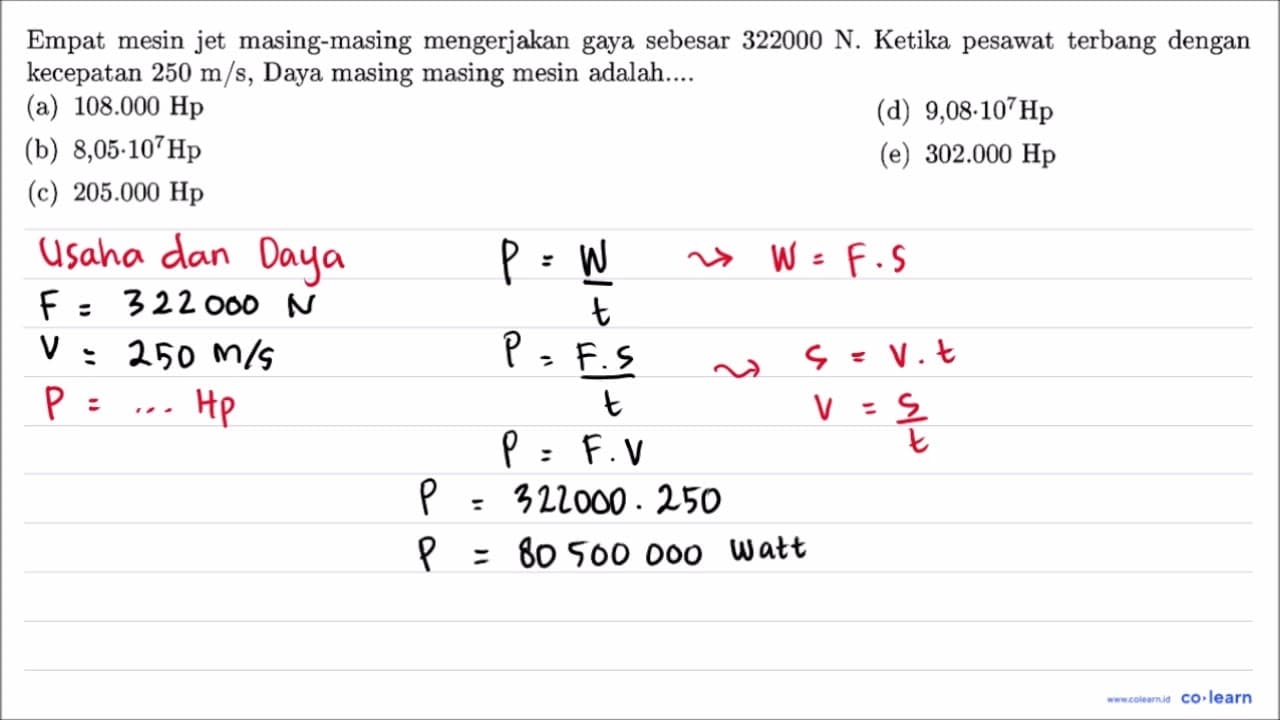 Empat mesin jet masing-masing mengerjakan gaya sebesar 322000 N. Ketika pesawat terbang dengan
kecepatan 250 m/s, Daya masing masing mesin adalah....
(a) 108.000 Hp
(b) 8,05·10⁷Hp
(c) 205.000 Hp
(d) 9,08·10⁷Hp
(e) 302.000 Hp
Usaha dan Daya
F = 322000 N
V = 250 m/s
P = ... Hp
P = W/t ⇝ W = F.s
P = F.s/t ⇝ s = v.t
v = s/t
P = F.V
P = 322000.250
P = 80 500 000 Watt
www.colearn.id co·learn